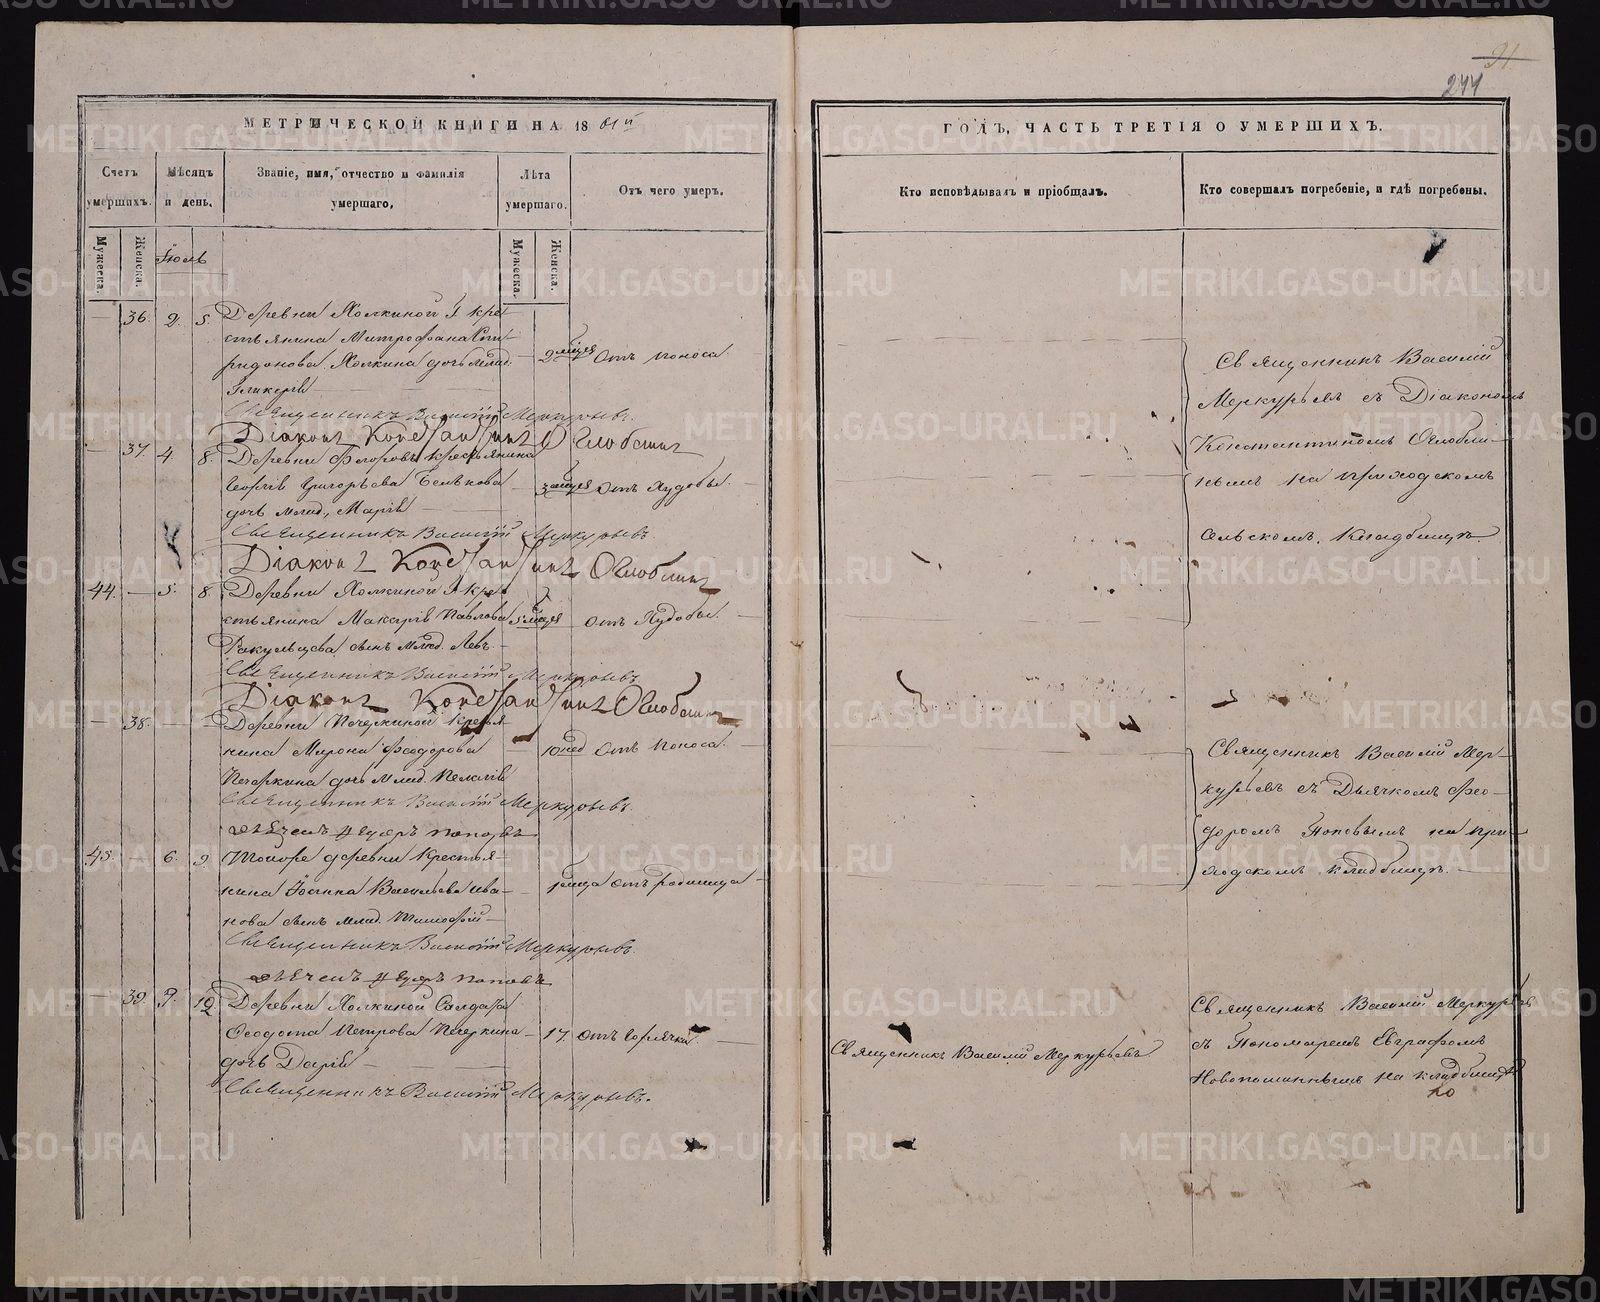 244
МЕТРИЧЕСКОЙ КНИГИ НА 1861й
ГОДЪ, ЧАСТЬ ТРЕТІЯ О УМЕРШИХЪ.
Счетъ умершихъ.
Мѣсяцъ и день.
Званіе, имя, отчество и фамилія умершаго,
Лѣта умершаго.
Отъ чего умеръ.
Кто исповѣдывалъ и пріобщалъ.
Кто совершалъ погребеніе, и гдѣ погребены.
Мужеска.
Женска.
Іюль
Мужеска.
Женска.
36. 2. 5. Деревни Холкиной крес-
тьянина Митрофана Спи-
ридонова Холкина дочь млад. 2 мѣсяца Отъ поноса.
Гликерія
Священникъ Василій Меркурьевъ.
Діаконъ Константинъ Оглоблинъ
37. 4. 8. Деревни крестьянина
Георгія Григорьева 3 мѣсяца Отъ худобы.
дочь млад. Марія
Священникъ Василій Меркурьевъ
Діаконъ Константинъ Оглоблинъ
44. 5. 8. Деревни Холкиной крес-
тьянина Макарія Павлова 5 мѣсяцъ отъ худобы.
Ракульцева сынъ млад. Левъ
Священникъ Василій Меркурьевъ
Діаконъ Константинъ Оглоблинъ
38. Деревни Печеркиной крестья-
нина Мирона Феодорова 10 нед отъ поноса.
Печеркина дочь млад. Пелагія
Священникъ Василій Меркурьевъ.
Дьячекъ Федоръ Поповъ
45. 6. 9. Тойже деревни крестья-
нина Іоанна Васильева Ива- 1 мѣсяца отъ родимца
нова сынъ млад. Тимофей
Священникъ Василій Меркурьевъ.
Дьячекъ Федоръ Поповъ
39. 9. 12. Деревни Холкиной Солдата
Феодота Петрова Печеркина 17. отъ горячки
дочь Дарія
Священникъ Василій Меркурьевъ.
Священникъ Василій Меркурьевъ
Священникъ Василій
Меркурьевъ съ Діакономъ
Константиномъ Оглобли-
нымъ на приходскомъ
сельскомъ кладбищѣ
Священникъ Василій Мер-
курьевъ съ Дьячкомъ Фео-
доромъ Поповымъ на при-
ходскомъ кладбищѣ.
Священникъ Василій Меркурьевъ
съ Пономаремъ Евграфомъ
на кладбищѣ
METRIKI.GASO-URAL.RU